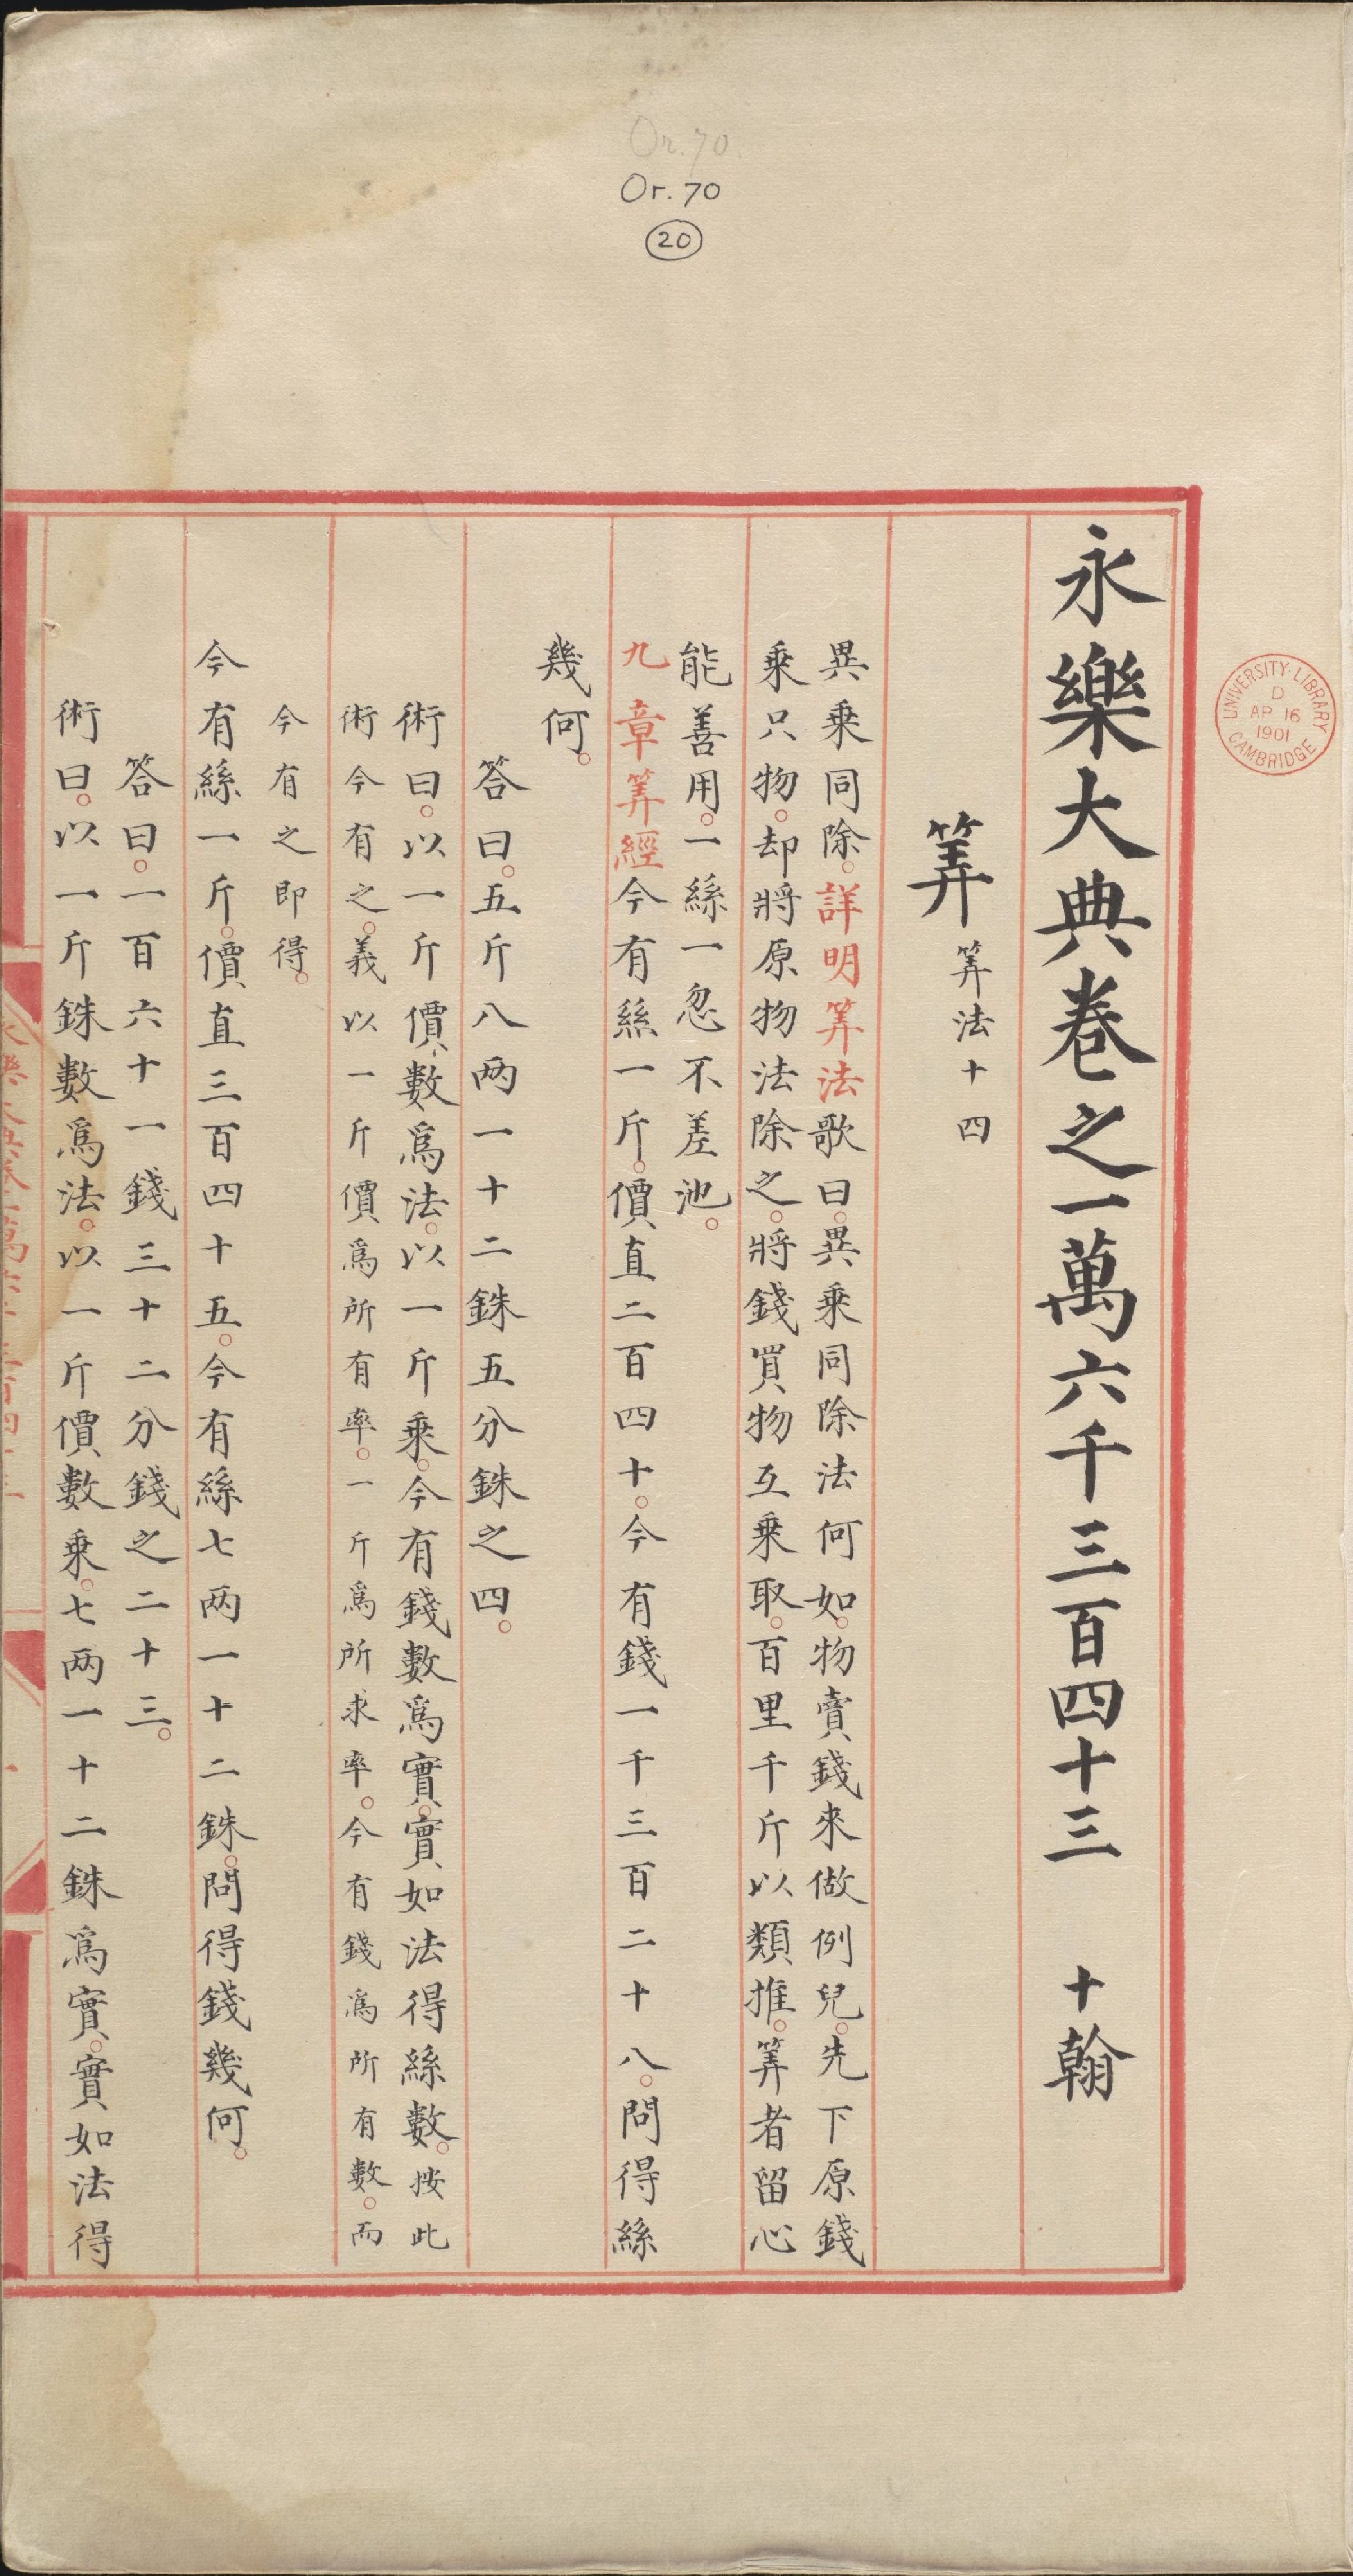 Or. 70
Or. 70
20
UNIVERSITY·LIBRARY CAMBRIDGE
D
AP 16
1901
永樂大典卷之一萬六千三百四十三 十翰
筭 筭法十四
異乘同除。詳明筭法歌曰。異乘同除法何如。物賣錢來做例兒。先下原錢
乘只物。却將原物法除之。將錢買物互乘取。百里千斤以類推。筭者留心
能善用。一絲一忽不差池。
九章筭經今有絲一斤。價直二百四十。今有錢一千三百二十八。問得絲
幾何。
答曰。五斤八两一十二銖五分銖之四。
術曰。以一斤價數爲法。以一斤乘。今有錢數爲實。實如法得絲數。按此
術今有之。義以一斤價爲所有率。一斤爲所求率。今有錢爲所有數。而
今有之即得。
今有絲一斤。價直三百四十五。今有絲七两一十二銖。問得錢幾何。
答曰。一百六十一錢三十二分錢之二十三。
術曰。以一斤銖數爲法。以一斤價數乘。七两一十二銖爲實。實如法得